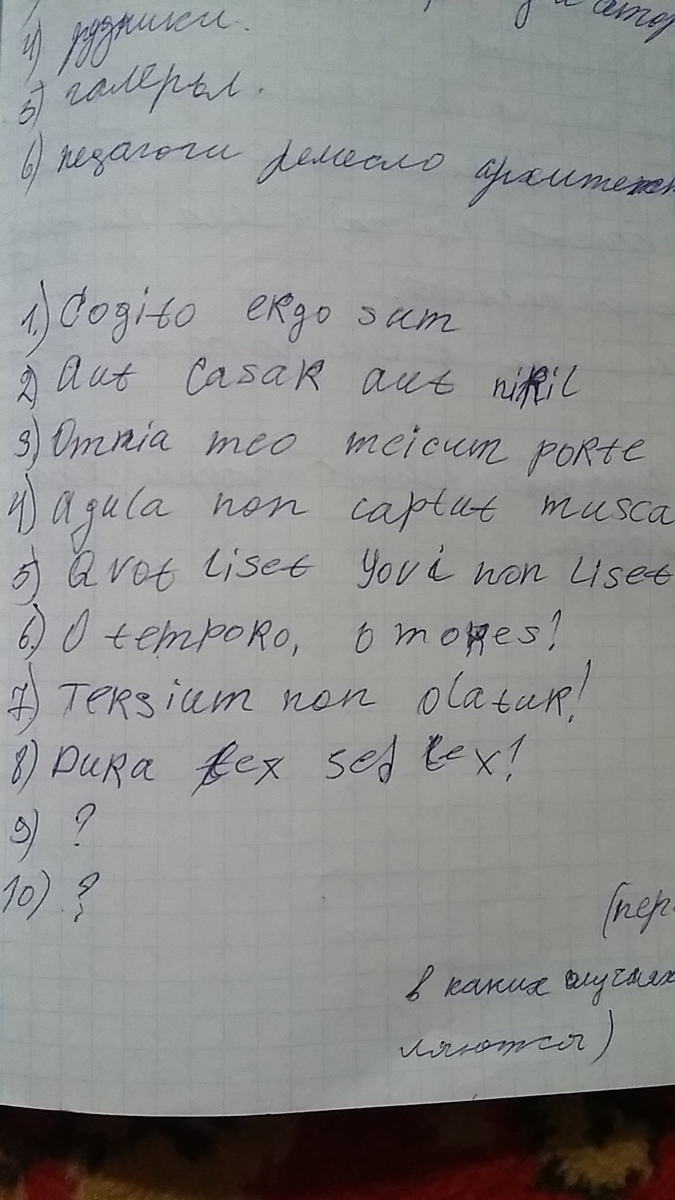 4) рудники.
5) галеры.
6) педагоги ремесло архитект
1.) Cogito ergo sum
2) Aut Casar aut nihil
3) Omnia meo meicum porte
4) Agula non captut musca
5) Qvot liset Yovi non liset
6.) O temporo, o mores!
7) Tersium non olatur!
8) Dura lex sed lex!
9) ?
10) ?
(пер
в каких случаях
ляются)